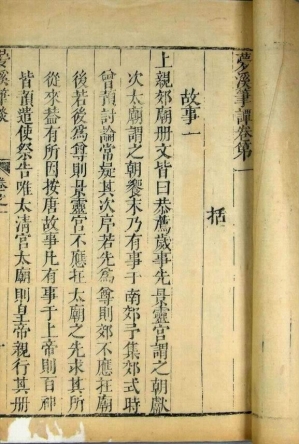 夢溪筆談卷第一
括
故事一
上親郊廟册文皆曰恭薦歲事先景靈宮謂之朝獻
次太廟謂之朝饗末乃有事于南郊予集郊式時
曾預討論常疑其次序若先爲尊則郊不應在廟
後若後爲尊則景靈宮不應在太廟之先求其所
從來蓋有所因按唐故事凡有事于上帝則百神
皆預遣使祭告唯太清宮太廟則皇帝親行其册
夢溪筆談
卷之一